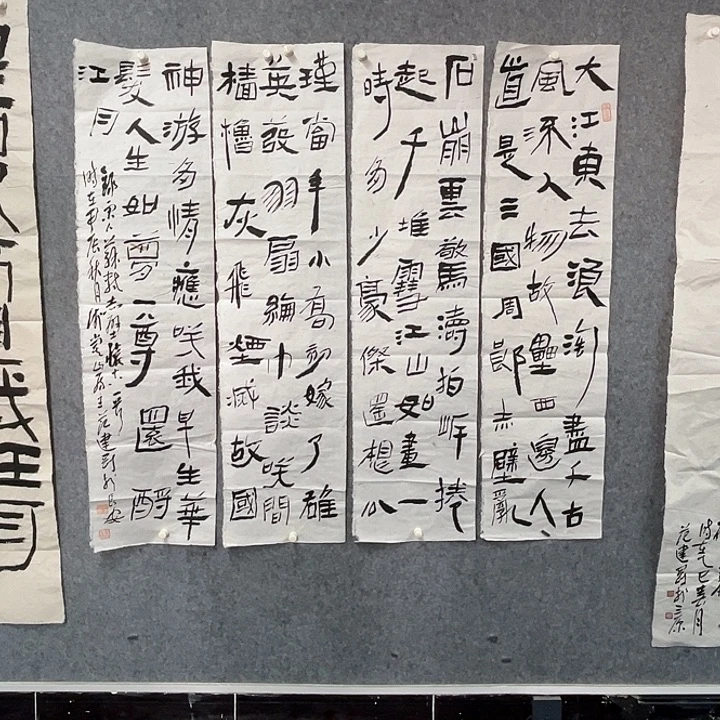 大江東去浪淘盡千古
風流人物故壘西邊人
道是三國周郎赤壁亂
石崩雲驚濤拍岸捲
起千堆雪江山如畫一
時多少豪傑遥想公
瑾當年小喬初嫁了雄
英發羽扇綸巾談咲間
檣櫓灰飛煙滅故國
神游多情應咲我早生華
髮人生如夢一尊還酹
江月
錄宋人蘇軾赤壁懷古
時在甲辰秋月
時在乙巳春月